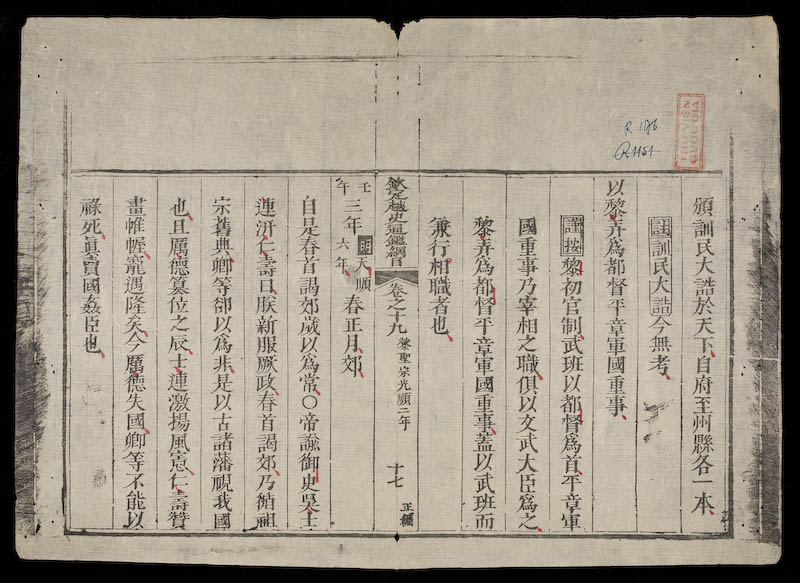 頒訓民大誥於天下自府至州縣各一本
註訓民大誥今無考
以黎弄爲都督平章軍國重事
謹按黎初官制武班以都督爲首平章軍
國重事乃宰相之職俱以文武大臣爲之
黎弄爲都督平章軍國重事蓋以武班而
兼行相職者也
欽定越史通鑑綱目 卷之十九 黎聖宗光順二年 十七 正編
壬午三年 明天順六年 春正月郊
自是春首謁郊歲以爲常○帝諭御史吳士
連汧仁壽曰朕新服厥政春首謁郊乃循祖
宗舊典卿等卻以爲非是以古諸藩視我國
也且厲德篡位之辰士連激揚風憲仁壽贊
畫帷幄寵遇隆矣今厲德失國卿等不能以
祿死眞賣國姦臣也
THƯ VIỆN
QUỐC GIA
R.1196
R.4151